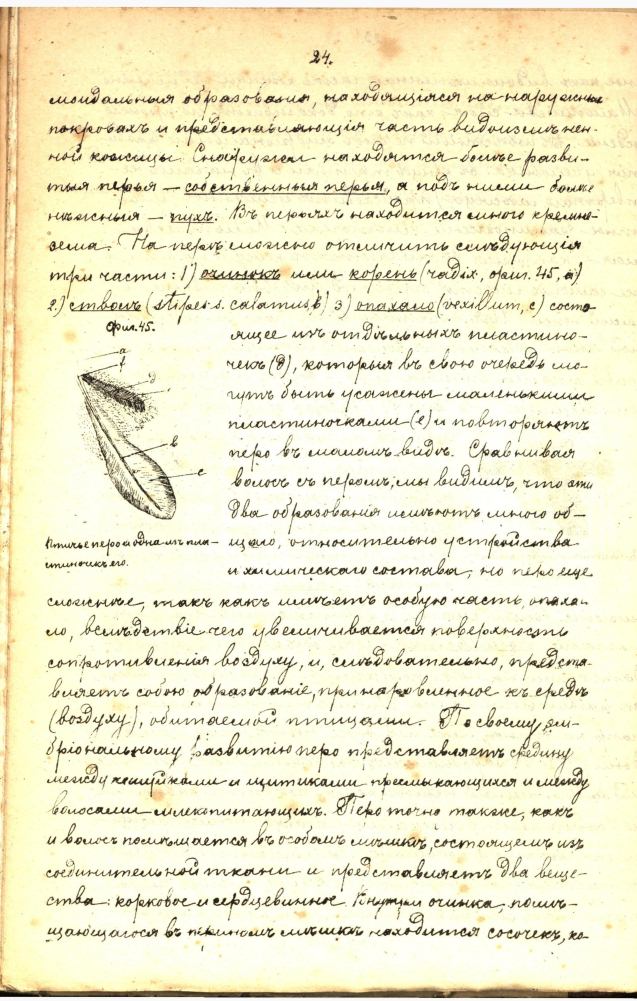 24.
моидальныя образования, находящіяся на наружных
покровахъ и представляющія часть видоизмѣнен-
ной кожицы. Снаружи находятся болѣе разви-
тыя перья — собственныя перья, а подъ ними болѣе
нѣжныя — пухъ. Въ перьяхъ находится много кремне-
зема. На перѣ можно отличить слѣдующія
три части: 1) очинокъ или корень (фиг. 45, a)
2) стволъ (stipes s. calamus, b) 3) опахало (vexillum, c) состо-
фиг. 45.
ящее изъ отдѣльныхъ пластино-
чекъ (d), которыя въ свою очередь мо-
гутъ быть усажены маленькими
пластиночками (e) и повторяютъ
перо въ маломъ видѣ. Сравнивая
волосъ съ перомъ, мы видимъ, что эти
два образования имѣютъ много об-
щаго, относительно устройства
и химическаго состава, но перо еще
a
f
d
b
c
Птичье перо и одна изъ пла-
стиночекъ его.
сложнѣе, такъ какъ имѣетъ особую часть, опаха-
ло, вслѣдствіе чего увеличивается поверхность
сопротивленія воздуху, и, слѣдовательно, предста-
вляетъ собою образованіе, принаровленное къ средѣ
(воздуху), обитаемой птицами. По своему эм-
бріональному развитію перо представляетъ средину
между чешуйками и щитиками пресмыкающихся и между
волосами млекопитающихъ. Перо точно также, какъ
и волосъ помѣщается въ особомъ мѣшкѣ, состоящемъ изъ
соединительной ткани и представляетъ два веще-
ства: корковое и сердцевинное. Внутри очинка, помѣ-
щающагося въ перяномъ мѣшкѣ находится сосочекъ, ко-